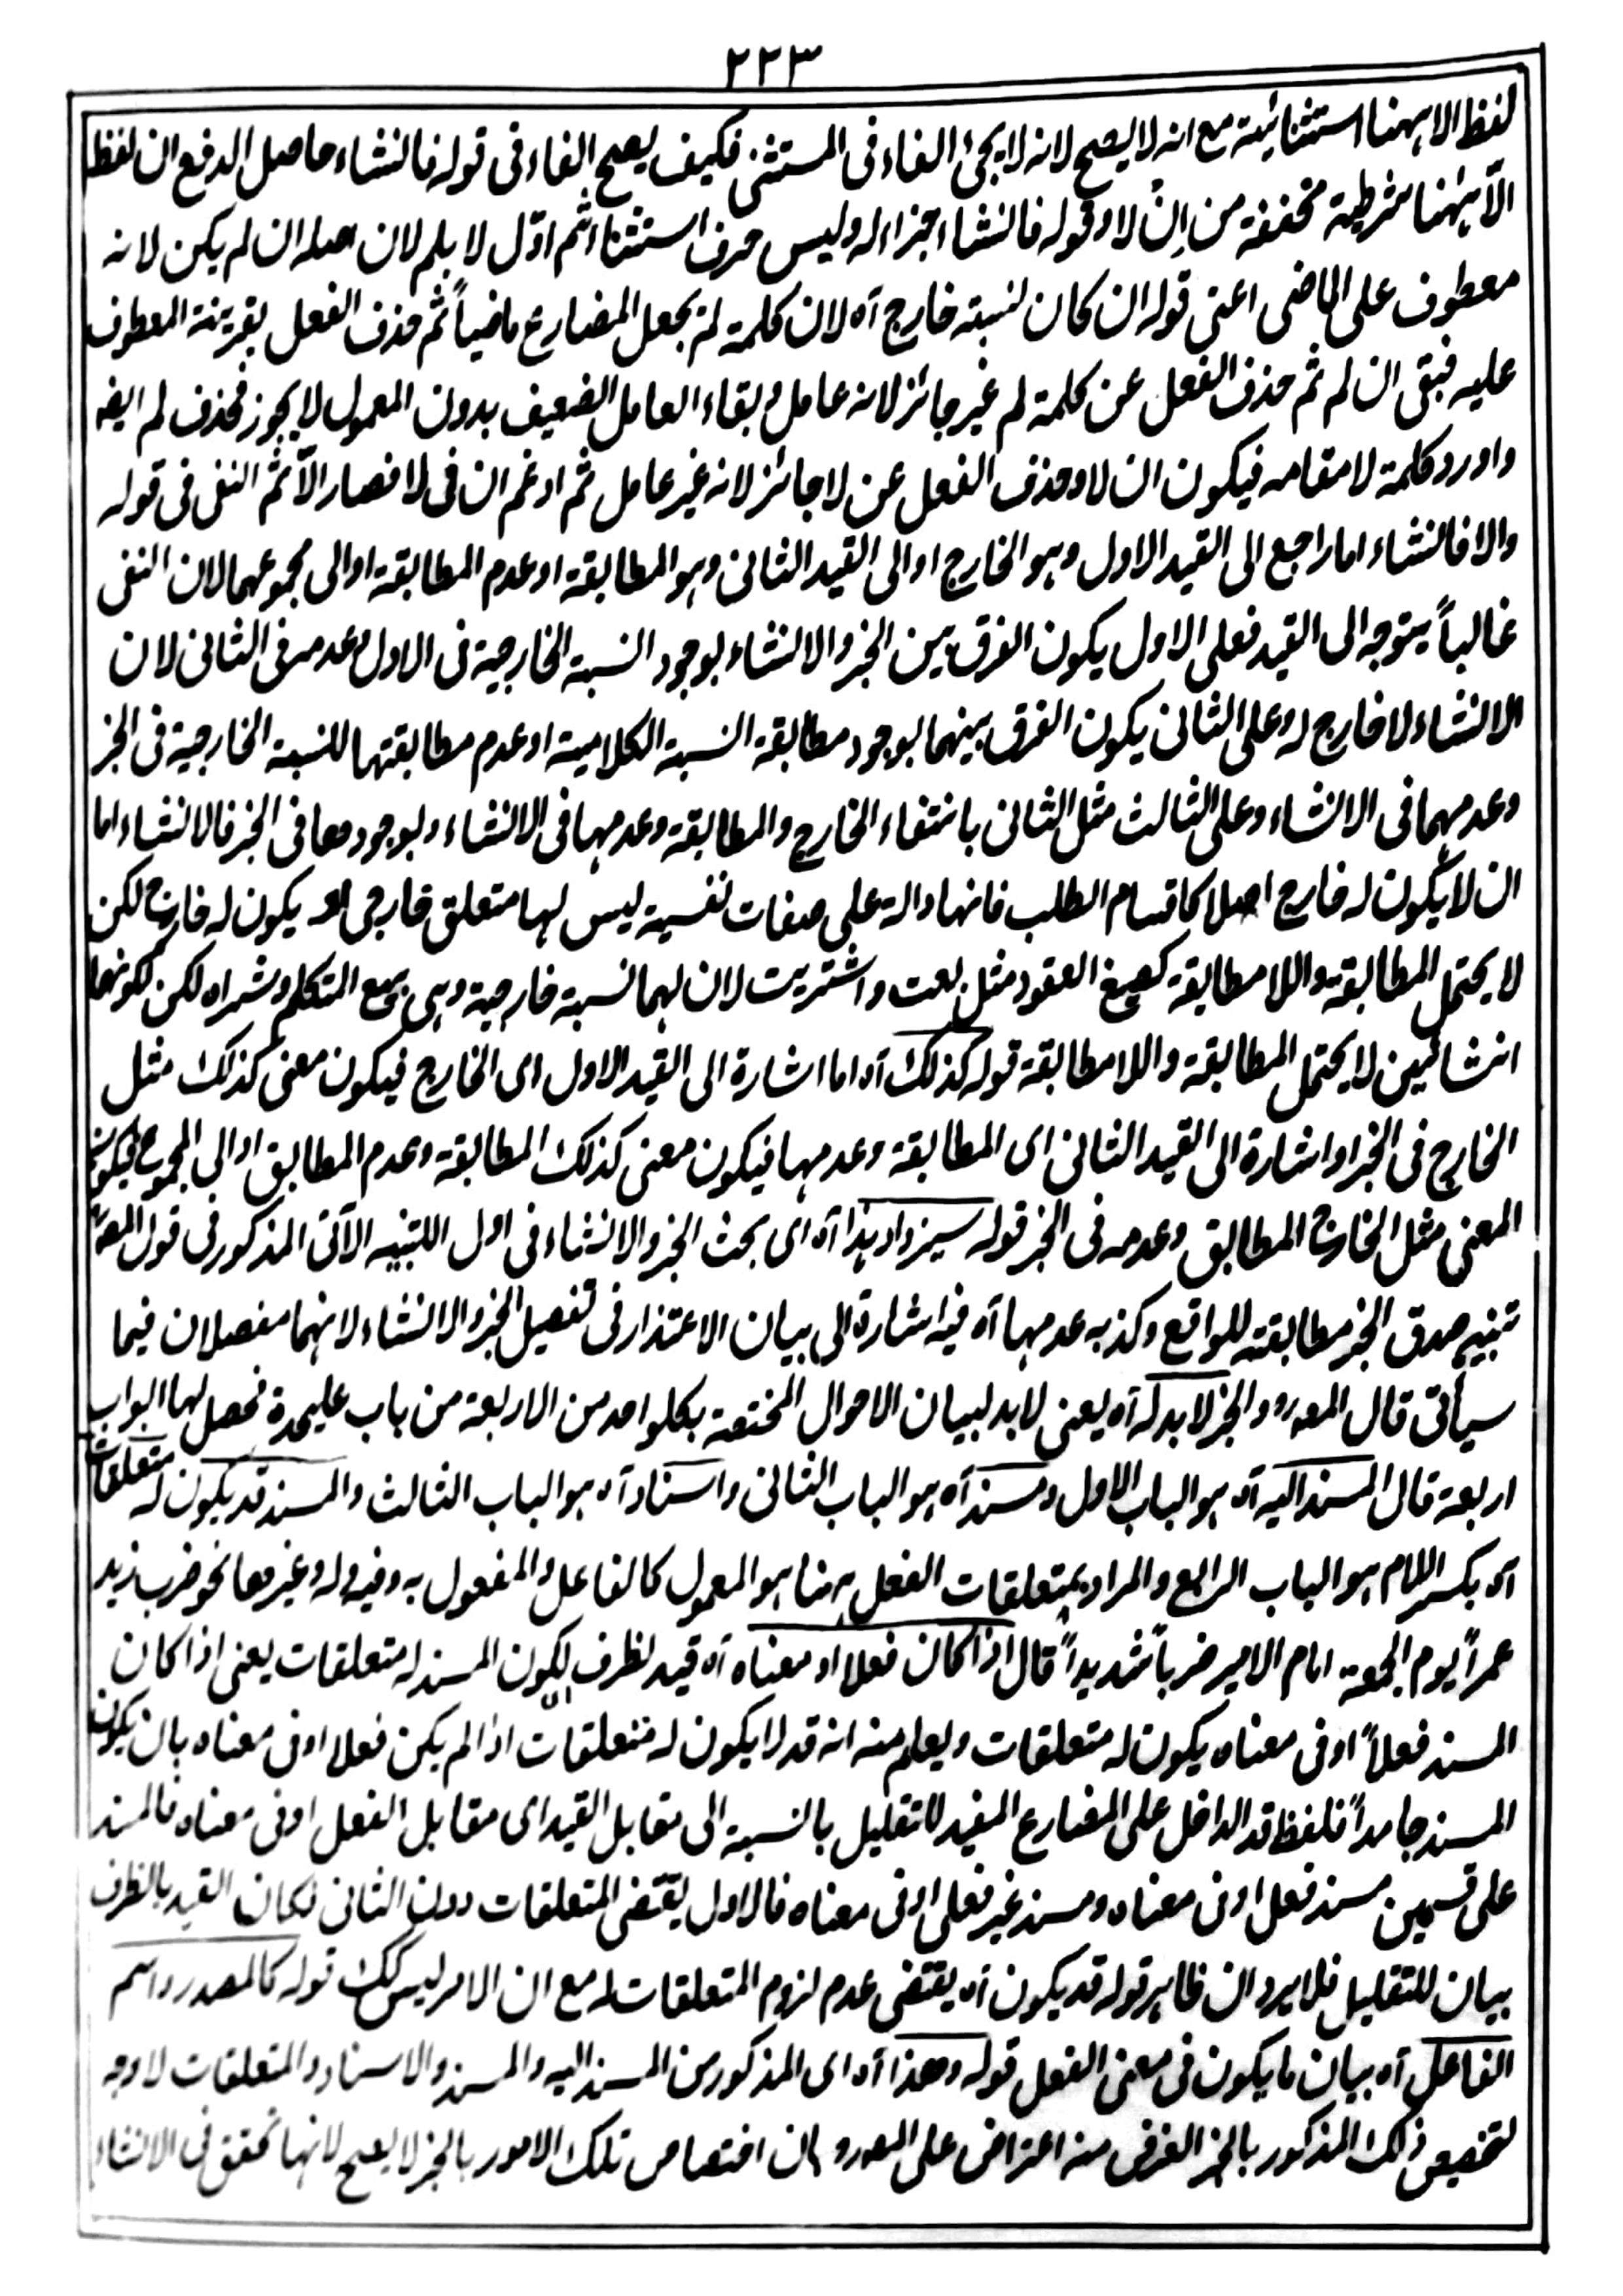 ٢٢٣
لفظ الا ہہنا استثنائیة مع انہ لا یصح لانہ لا یجئ الفاء فی المستثنی فکیف یصح الفاء فی قولہ فانشاء حاصل الدفع ان لفظ
الّا ہہنا شرطیة مخففة من اِنْ لا وقولہ فانشاء جزاء لہ ولیس حرف استثناء ثم اوّل لا بلم لان اصلہ ان لم یکن لانہ
معطوف علی الماضی اعنی قولہ ان کان لنسبتہ خارج آہ لان کلمة لم یجعل المضارع ماضیاً ثم حذف الفعل بقرینة المعطوف
علیہ فبقی ان لم ثم حذف الفعل عن کلمة لم غیر جائز لانہ عامل وبقاء العامل الضعیف بدون المعمول لا یجوز فحذف لم ایضہ
واورد کلمة لا مقامہ فیکون ان لا وحذف الفعل عن لا جائز لانہ غیر عامل ثم ادغم ان فی لا فصار الّا ثم النفی فی قولہ
والا فانشاء اما راجع الی القید الاول وہو الخارج او الی القید الثانی وہو المطابقة او عدم المطابقة او الی مجموعہما لان النفی
غالباً یتوجہ الی القید فعلی الاول یکون الفرق بین الخبر والانشاء بوجود النسبة الخارجیة فی الاول وعدمہ فی الثانی لان
الانشاء لا خارج لہ وعلی الثانی یکون الفرق بینہما بوجود مطابقة النسبة الکلامیة او عدم مطابقتہا للنسبة الخارجیة فی الخبر
وعدمہما فی الانشاء وعلی الثالث مثل الثانی بانتفاء الخارج والمطابقة وعدمہا فی الانشاء وبوجودہما فی الخبر فالانشاء اما
ان لا یکون لہ خارج اصلا کاقسام الطلب فانہا دالة علی صفات نفسیة لیس لہا متعلق خارجی او یکون لہ خارج لکن
لا یحتمل المطابقة واللا مطابقة کصیغ العقود مثل بعت واشتریت لان لہما نسبة خارجیة وہی بیع المتکلم وشراہ لکن لکونہما
انشائیین لا یحتمل المطابقة واللا مطابقة قولہ کذلک آہ اما اشارة الی القید الاول ای الخارج فیکون معنی کذلک مثل
الخارج فی الخبر او اشارة الی القید الثانی ای المطابقة وعدمہا فیکون معنی کذلک المطابقة وعدم المطابق او الی المجموع فیکون
المعنی مثل الخارج المطابق وعدمہ فی الخبر قولہ سیزداد ہذا آہ ای بحث الخبر والانشاء فی اول التنبیہ الآتی المذکور فی قول المصہ
تنبیہ صدق الخبر مطابقتہ للواقع وکذبہ عدمہا آہ فیہ اشارة الی بیان الاعتذار فی تفصیل الخبر والانشاء لانہما مفصلان فیما
سیأتی قال المصہ رہ والخبر لا بد لہ آہ یعنی لا بد لبیان الاحوال المختصة بکلواحد من الاربعة من باب علیحدة فحصل لہا ابواب
اربعة قال المسند الیہ آہ ہو الباب الاول ومسند آہ ہو الباب الثانی واسناد آہ ہو الباب الثالث والمسند قد یکون لہ متعلقات
آہ بکسر اللام ہو الباب الرابع والمراد بمتعلقات الفعل ہہنا ہو المعمول کالفاعل والمفعول بہ وفیہ ولہ وغیرہا نحو ضرب زید
عمراً یوم الجمعة امام الامیر ضرباً شدیداً قال اذا کان فعلا او معناہ آہ قید لظرف لکون المسند لہ متعلقات یعنی اذا کان
المسند فعلاً او فی معناہ یکون لہ متعلقات ویعلم منہ انہ قد لا یکون لہ متعلقات اذا لم یکن فعلا او فی معناہ بان یکون
المسند جامداً فلفظ قد الداخل علی المضارع المفید للتقلیل بالنسبة الی مقابل القید ای مقابل الفعل او فی معناہ فالمسند
علی قسمین مسند فعل او فی معناہ ومسند غیر فعل او فی معناہ فالاول یقتضی المتعلقات دون الثانی فکان القید بالظرف
بیان للتقلیل فلا یرد ان ظاہر قولہ قد یکون آہ یقتضی عدم لزوم المتعلقات لہ مع ان الامر لیس کک قولہ کالمصدر واسم
الفاعل آہ بیان ما یکون فی معنی الفعل قولہ وھذا آہ ای المذکور من المسند الیہ والمسند والاسناد والمتعلقات لا وجہ
لتخصیص ذلک المذکور بالخبر الغرض منہ اعتراض علی المصہ رہ بان اختصاص تلک الامور بالخبر لا یصح لانہا تحقق فی الانشاء